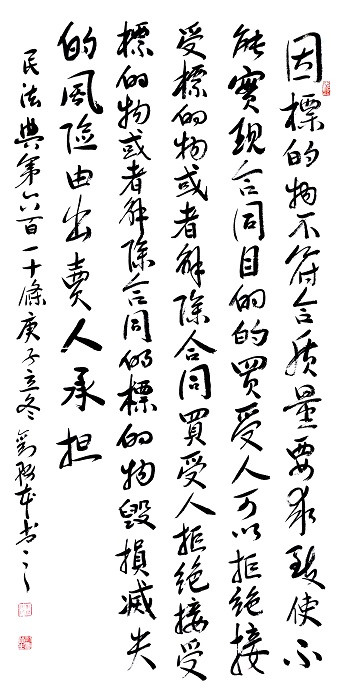 因標的物不符合质量要求致使不
能實現合同目的的買受人可以拒絶接
受標的物或者解除合同買受人拒絶接受
標的物或者解除合同的標的物毁損滅失
的風险由出賣人承担
民法典第六百一十條庚子立冬劉本书